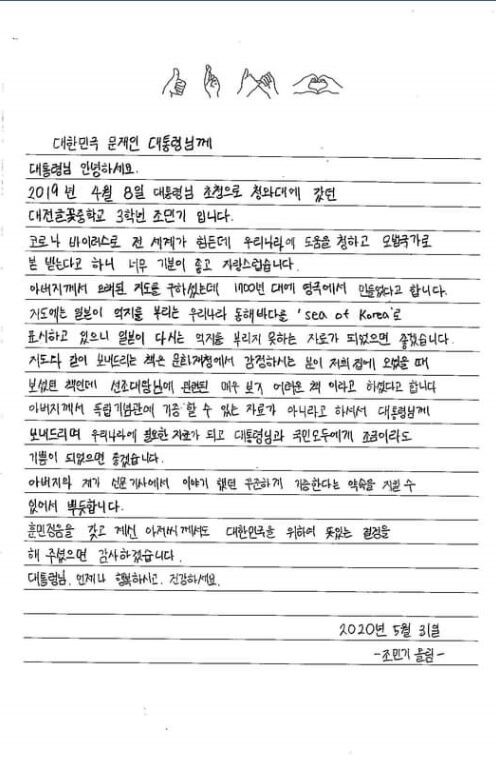 대한민국 문재인 대통령님께
대통령님 안녕하세요.
2019년 4월 8일 대통령님 초청으로 청와대에 갔던
대전글꽃중학교 3학년 조민기 입니다.
코로나 바이러스로 전 세계가 힘든데 우리나라에 도움을 청하고 모범국가로
본 받는다고 하니 너무 기분이 좋고 자랑스럽습니다.
아버지께서 오래된 지도를 구하셨는데 1700년대에 영국에서 만들었다고 합니다.
지도에는 일본이 억지를 부리는 우리나라 동해바다를 'sea of Korea'로
표시하고 있으니 일본이 다시는 억지를 부리지 못하는 자료가 되었으면 좋겠습니다.
지도와 같이 보내드리는 책은 문화재청에서 감정하시는 분이 저희 집에 오셨을 때
보셨던 책인데 선조대왕님에 관련된 매우 보기 어려운 책 이라고 하셨다고 합니다
아버지께서 독립기념관에 기증 할 수 있는 자료가 아니라고 하셔서 대통령님께
보내드리며 우리나라에 필요한 자료가 되고 대통령님과 국민모두에게 조금이라도
기쁨이 되었으면 좋겠습니다.
아버지와 제가 신문기사에서 이야기 했던 꾸준하게 기증한다는 약속을 지킬 수
있어서 뿌듯합니다.
훈민정음을 갖고 계신 아저씨께서도 대한민국을 위하여 뜻있는 결정을
해 주셨으면 감사하겠습니다.
대통령님, 언제나 행복하시고, 건강하세요.
2020년 5월 31일
-조민기 올림-